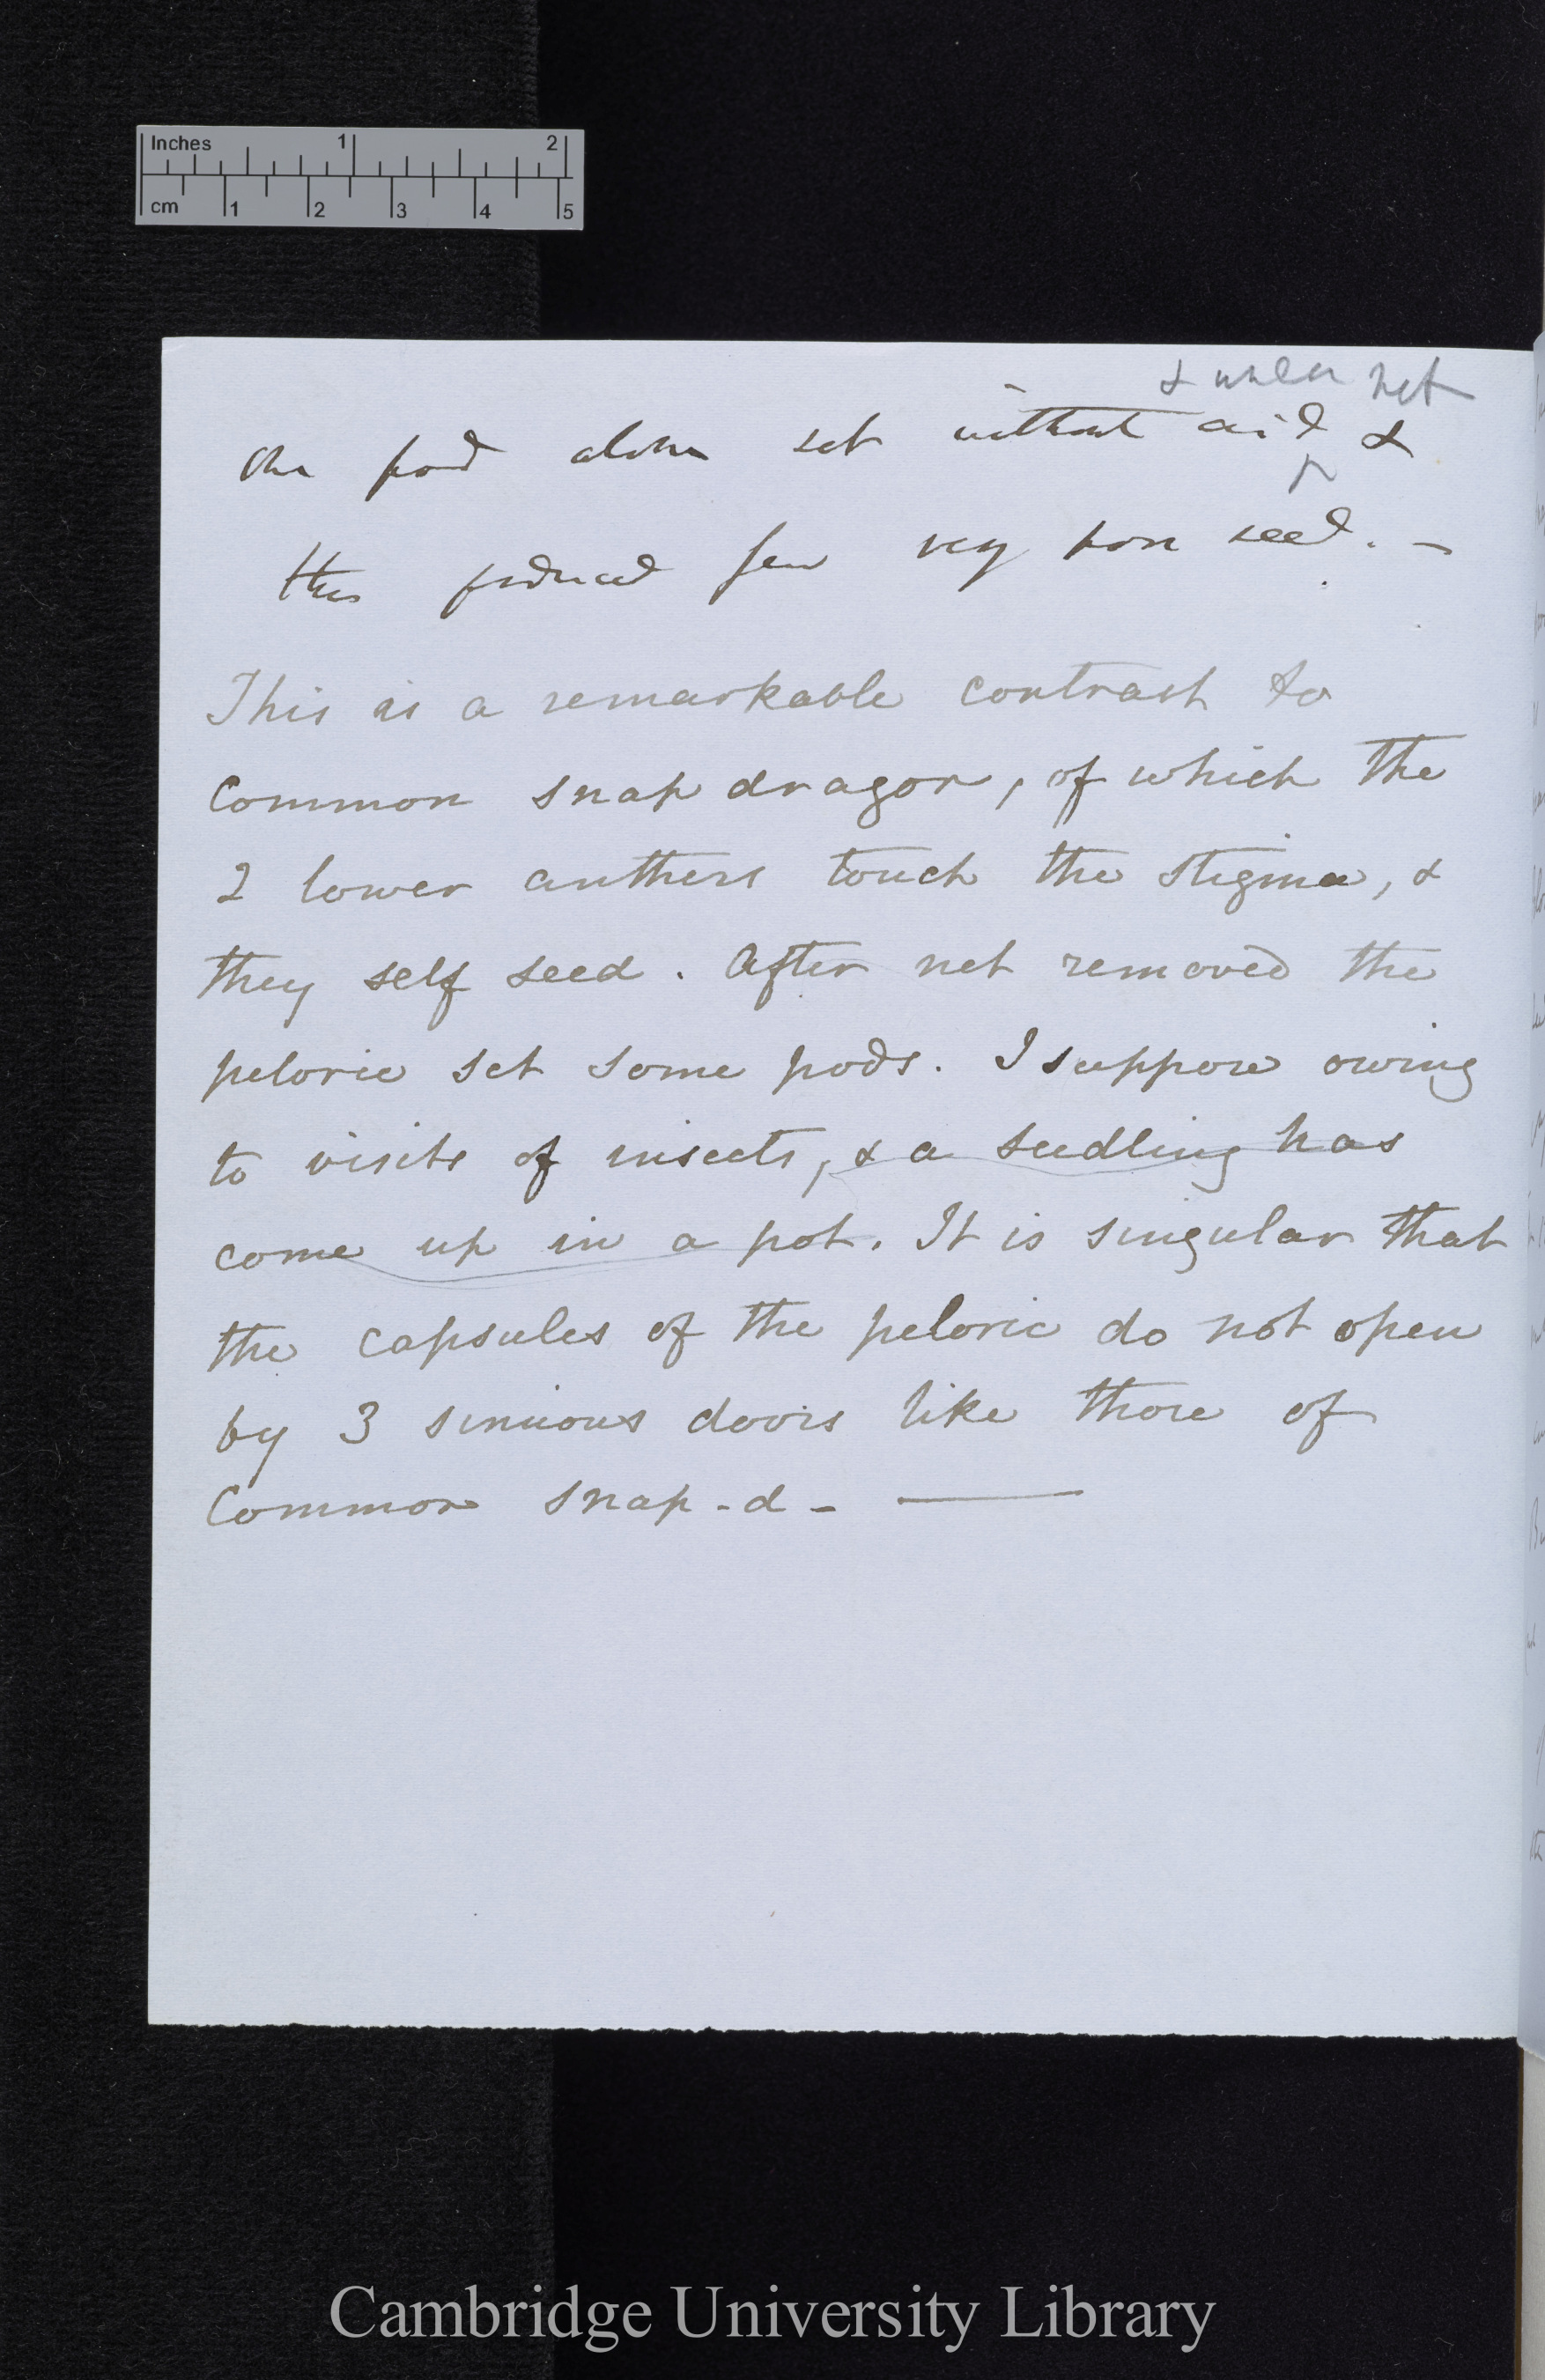 Inches 1 2
cm 1 2 3 4 5
& under net
One pod alone set without aid &
this produced few very poor seed. —
This is a remarkable contrast to
common snap dragon, of which the
2 lower anthers touch the stigma, &
they self seed. After net removed the
peloric set some pods. I suppose owing
to visits of insects, & a seedling has
come up in a pot. It is singular that
the capsules of the peloric do not open
by 3 sinuous doors like those of
Common snap-d- —
Cambridge University Library